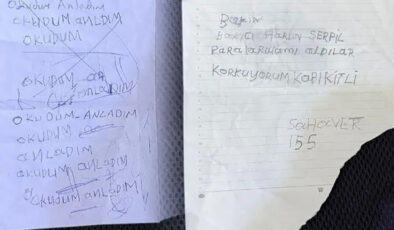 Okudum Anladım
OKUDUM ANLDIM
OKUDUM
OKUDUM an
ANLADIM
OKUDUM-ANLADIM
OKUDUM
anLADIM
OKUDUM anLADIM
OKUDUM anLADIM
HARUN SERPİL
PARALARIMI ALDILAR
KORKUYORUM KAPI KİTLİ
155